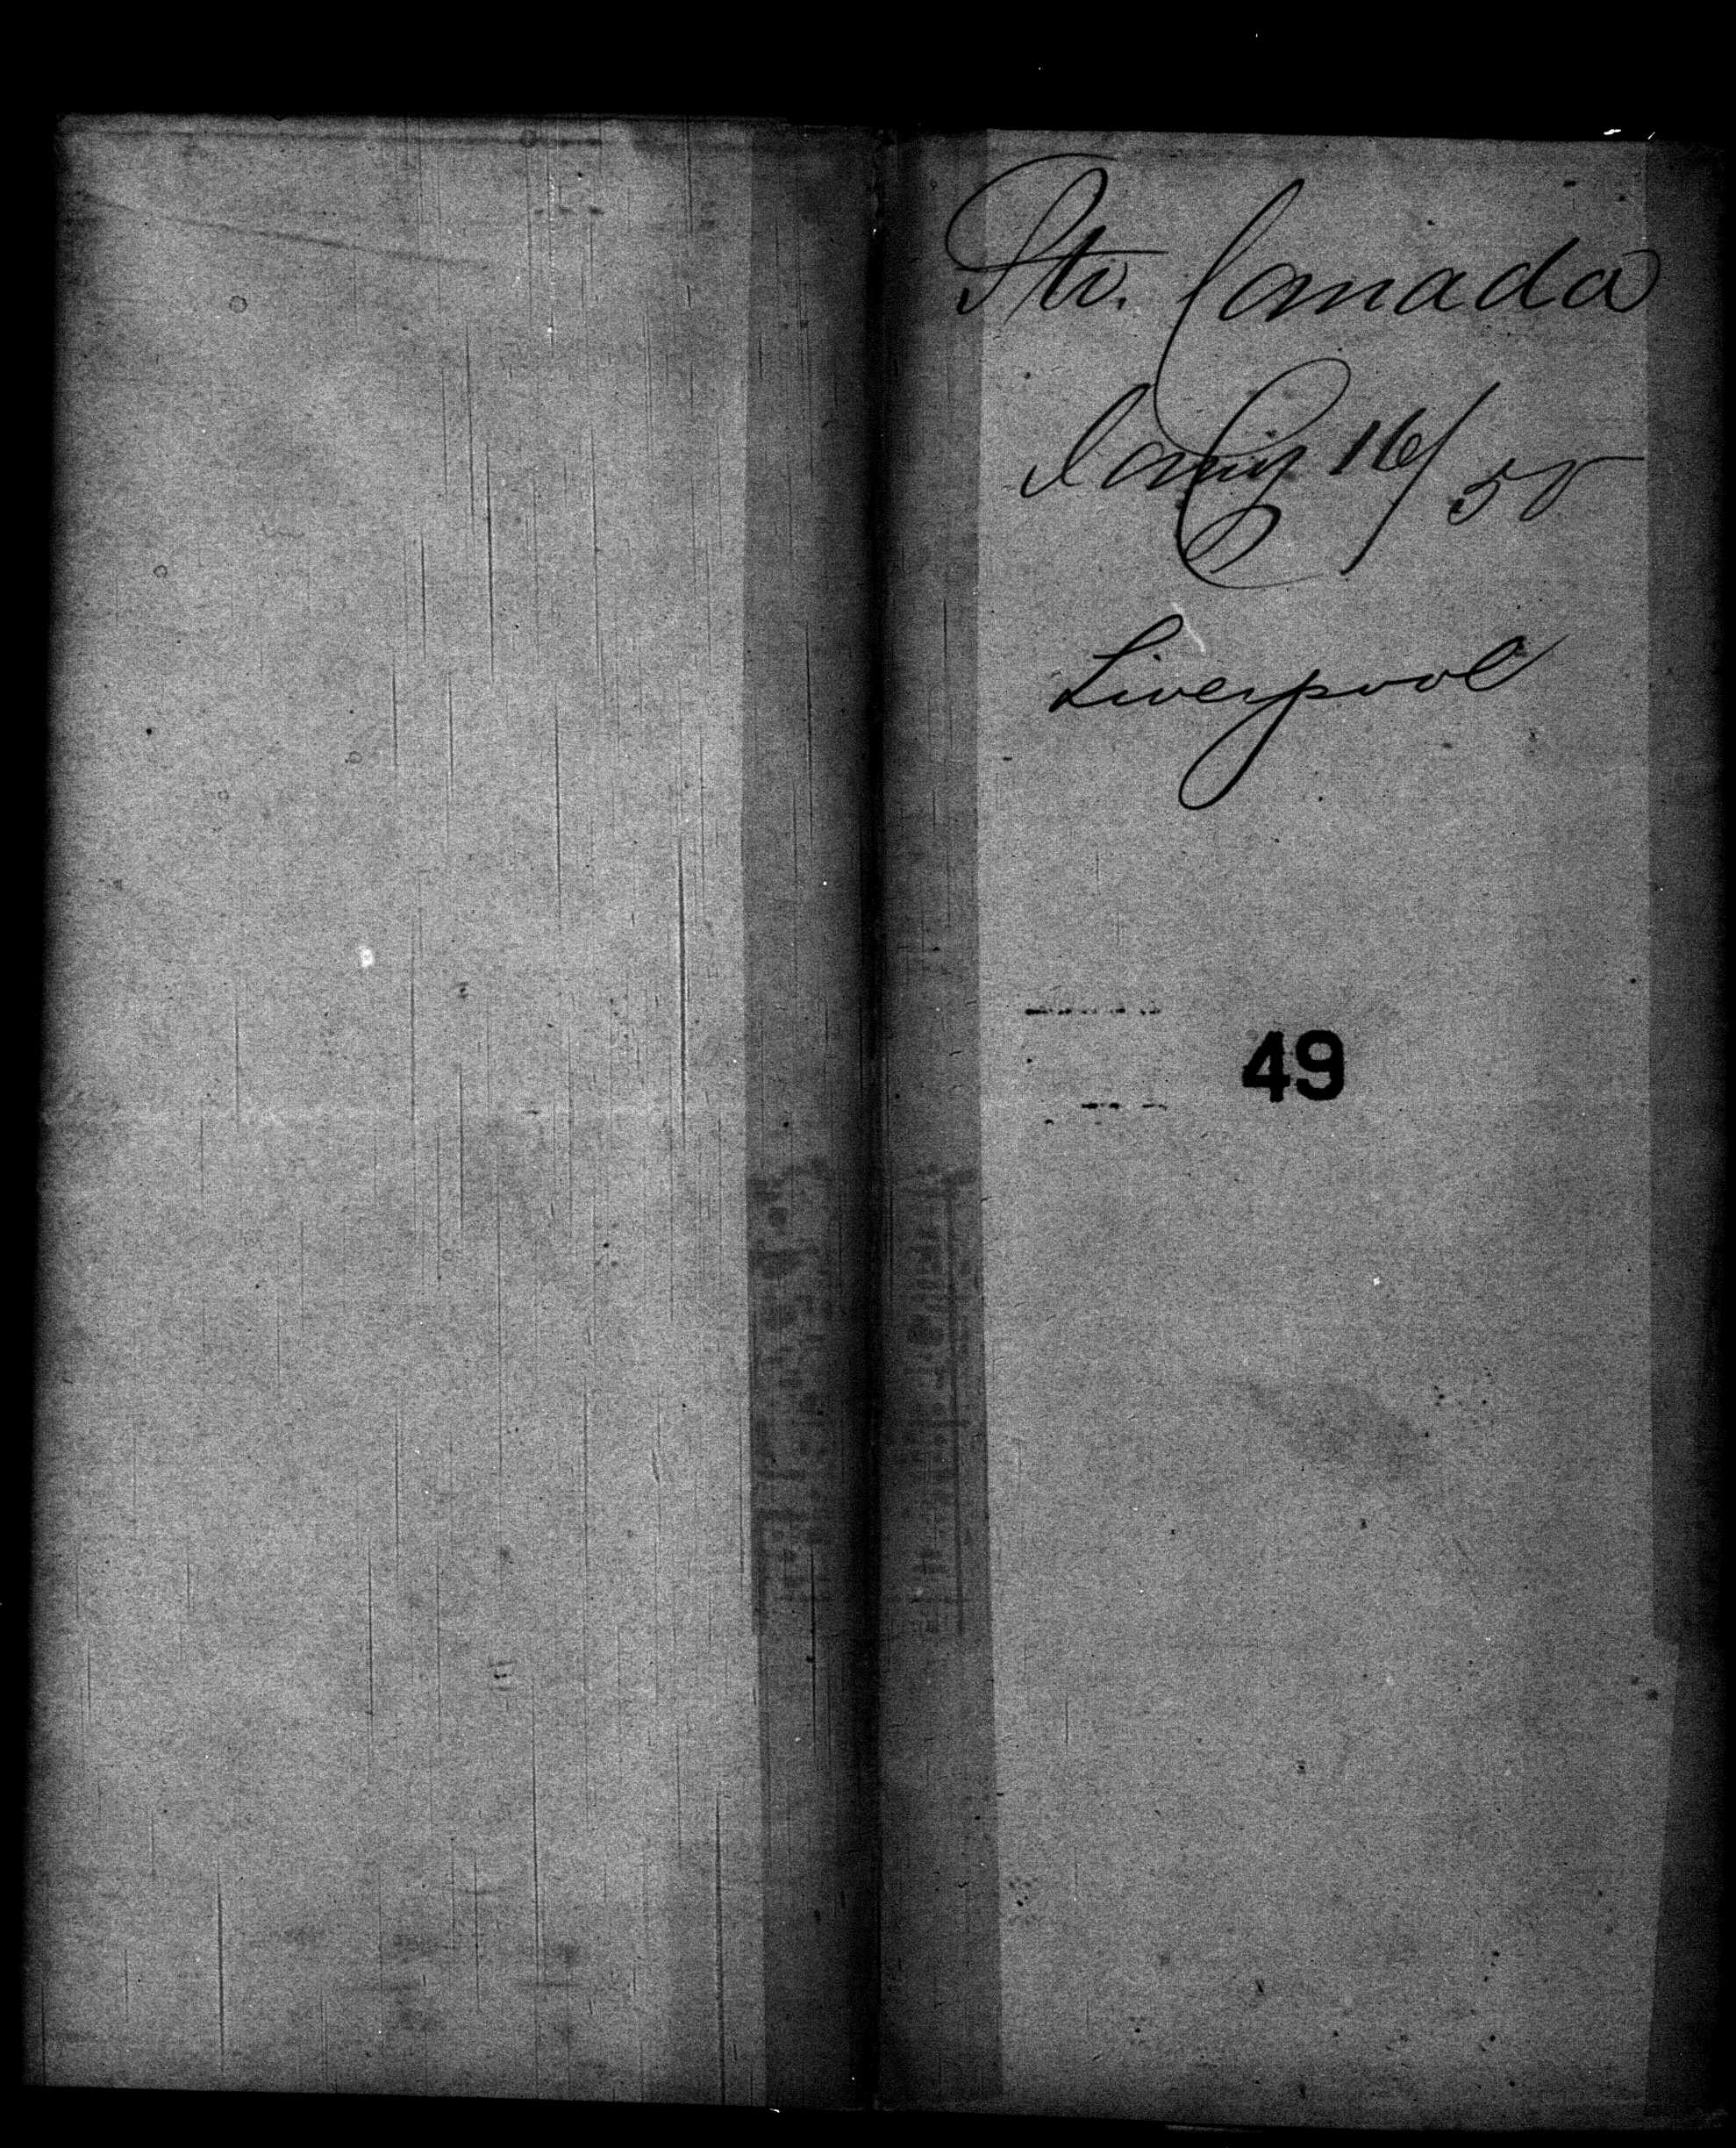 Str. Canada
Jany 16/50
Liverpool
49